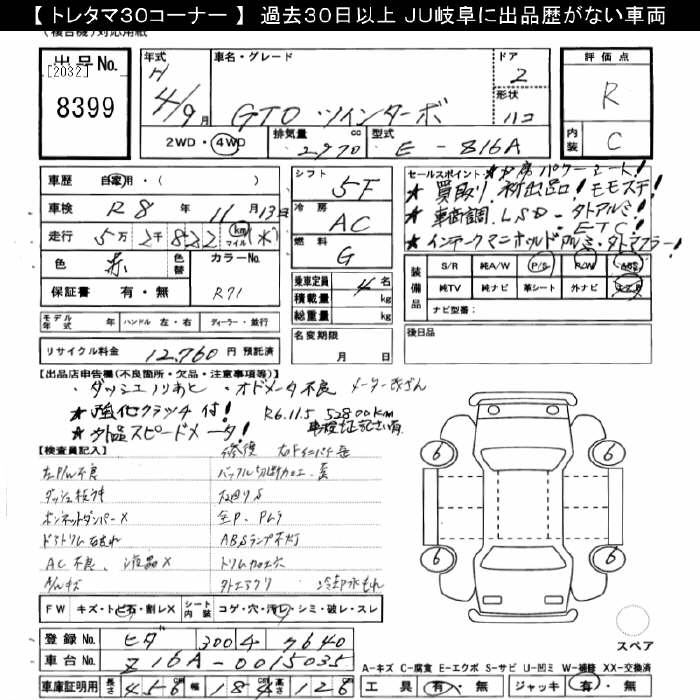 【 トレタマ30コーナー 】 過去30日以上 JU岐阜に出品歴がない車両
出品No. [2032] 8399
年式 H 4/9月
車名・グレード GTO ツインターボ
ドア 2
形状 ハコ
2WD・4WD
排気量 2970 cc
型式 E-Z16A
評価点 R
内装 C
車歴 自家用・( )
車検 R8 年 11月 13日
走行 5万 2千 822 km マイル
色 赤
色替
カラーNo. R71
保証書 有・無
モデル年式 年
ハンドル 左・右
ディーラー・並行
リサイクル料金 12,760 円 預託済
シフト 5F
冷房 AC
燃料 G
乗車定員 4 名
積載量 kg
総重量 kg
名変期限 月 日
セールスポイント
★買取り 新出品! モモステ!
★車高調、LSD・タトアルミ!
ETC!
★インテークマニホルドアルミ・タトマフラー!
装備品
S/R 純A/W P/S R/W ABS
純TV 純ナビ 革シート 外ナビ
ナビ型番:
後日品
【出品店申告欄(不良箇所・欠品・注意事項等)】
・ダッシュノリあと ・オドメータ不良 メーター改ざん
★強化クラッチ付! R6.11.5 52800km
★外品スピードメータ! 車検証記さい有
【検査員記入】
左P/W不良
ボンネットダンパーX
AC不良、液晶X
A/Wキズ
全P、Pムラ
ABSランプ不灯
トリム加工穴
外エアクリ 冷却水もれ
FW キズ・トビ石・割レX
シート内装 コゲ・穴・汚レ・シミ・破レ・スレ
登録No. ヒダ 300 4 7640
車台No. Z16A-0015035
車庫証明用 長さ 456cm 幅 184cm 高さ 126cm
6 6
6 6
スペア
A-キズ C-腐食 E-エクボ S-サビ U-凹ミ W-補修 XX-交換済
工具 有・無 ジャッキ 有・無